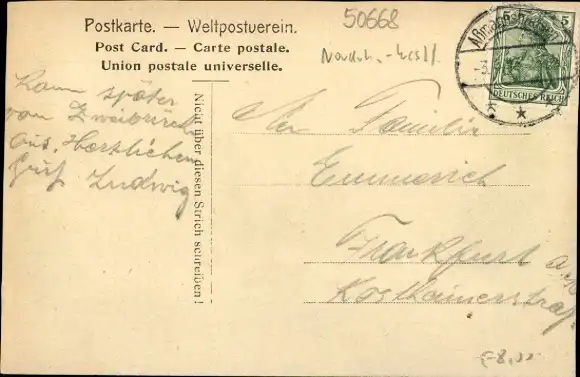 Postkarte. — Weltpostverein.
Post Card. — Carte postale.
Union postale universelle.
50668
5 5
DEUTSCHES REICH
Kann später
von Zweibrück
aus. Herzlichen
Gruß Ludwig
Nicht über diesen Strich schreiben!
An Familie
Emmerich
Frankfurt a.M.
Kostheimerstraße